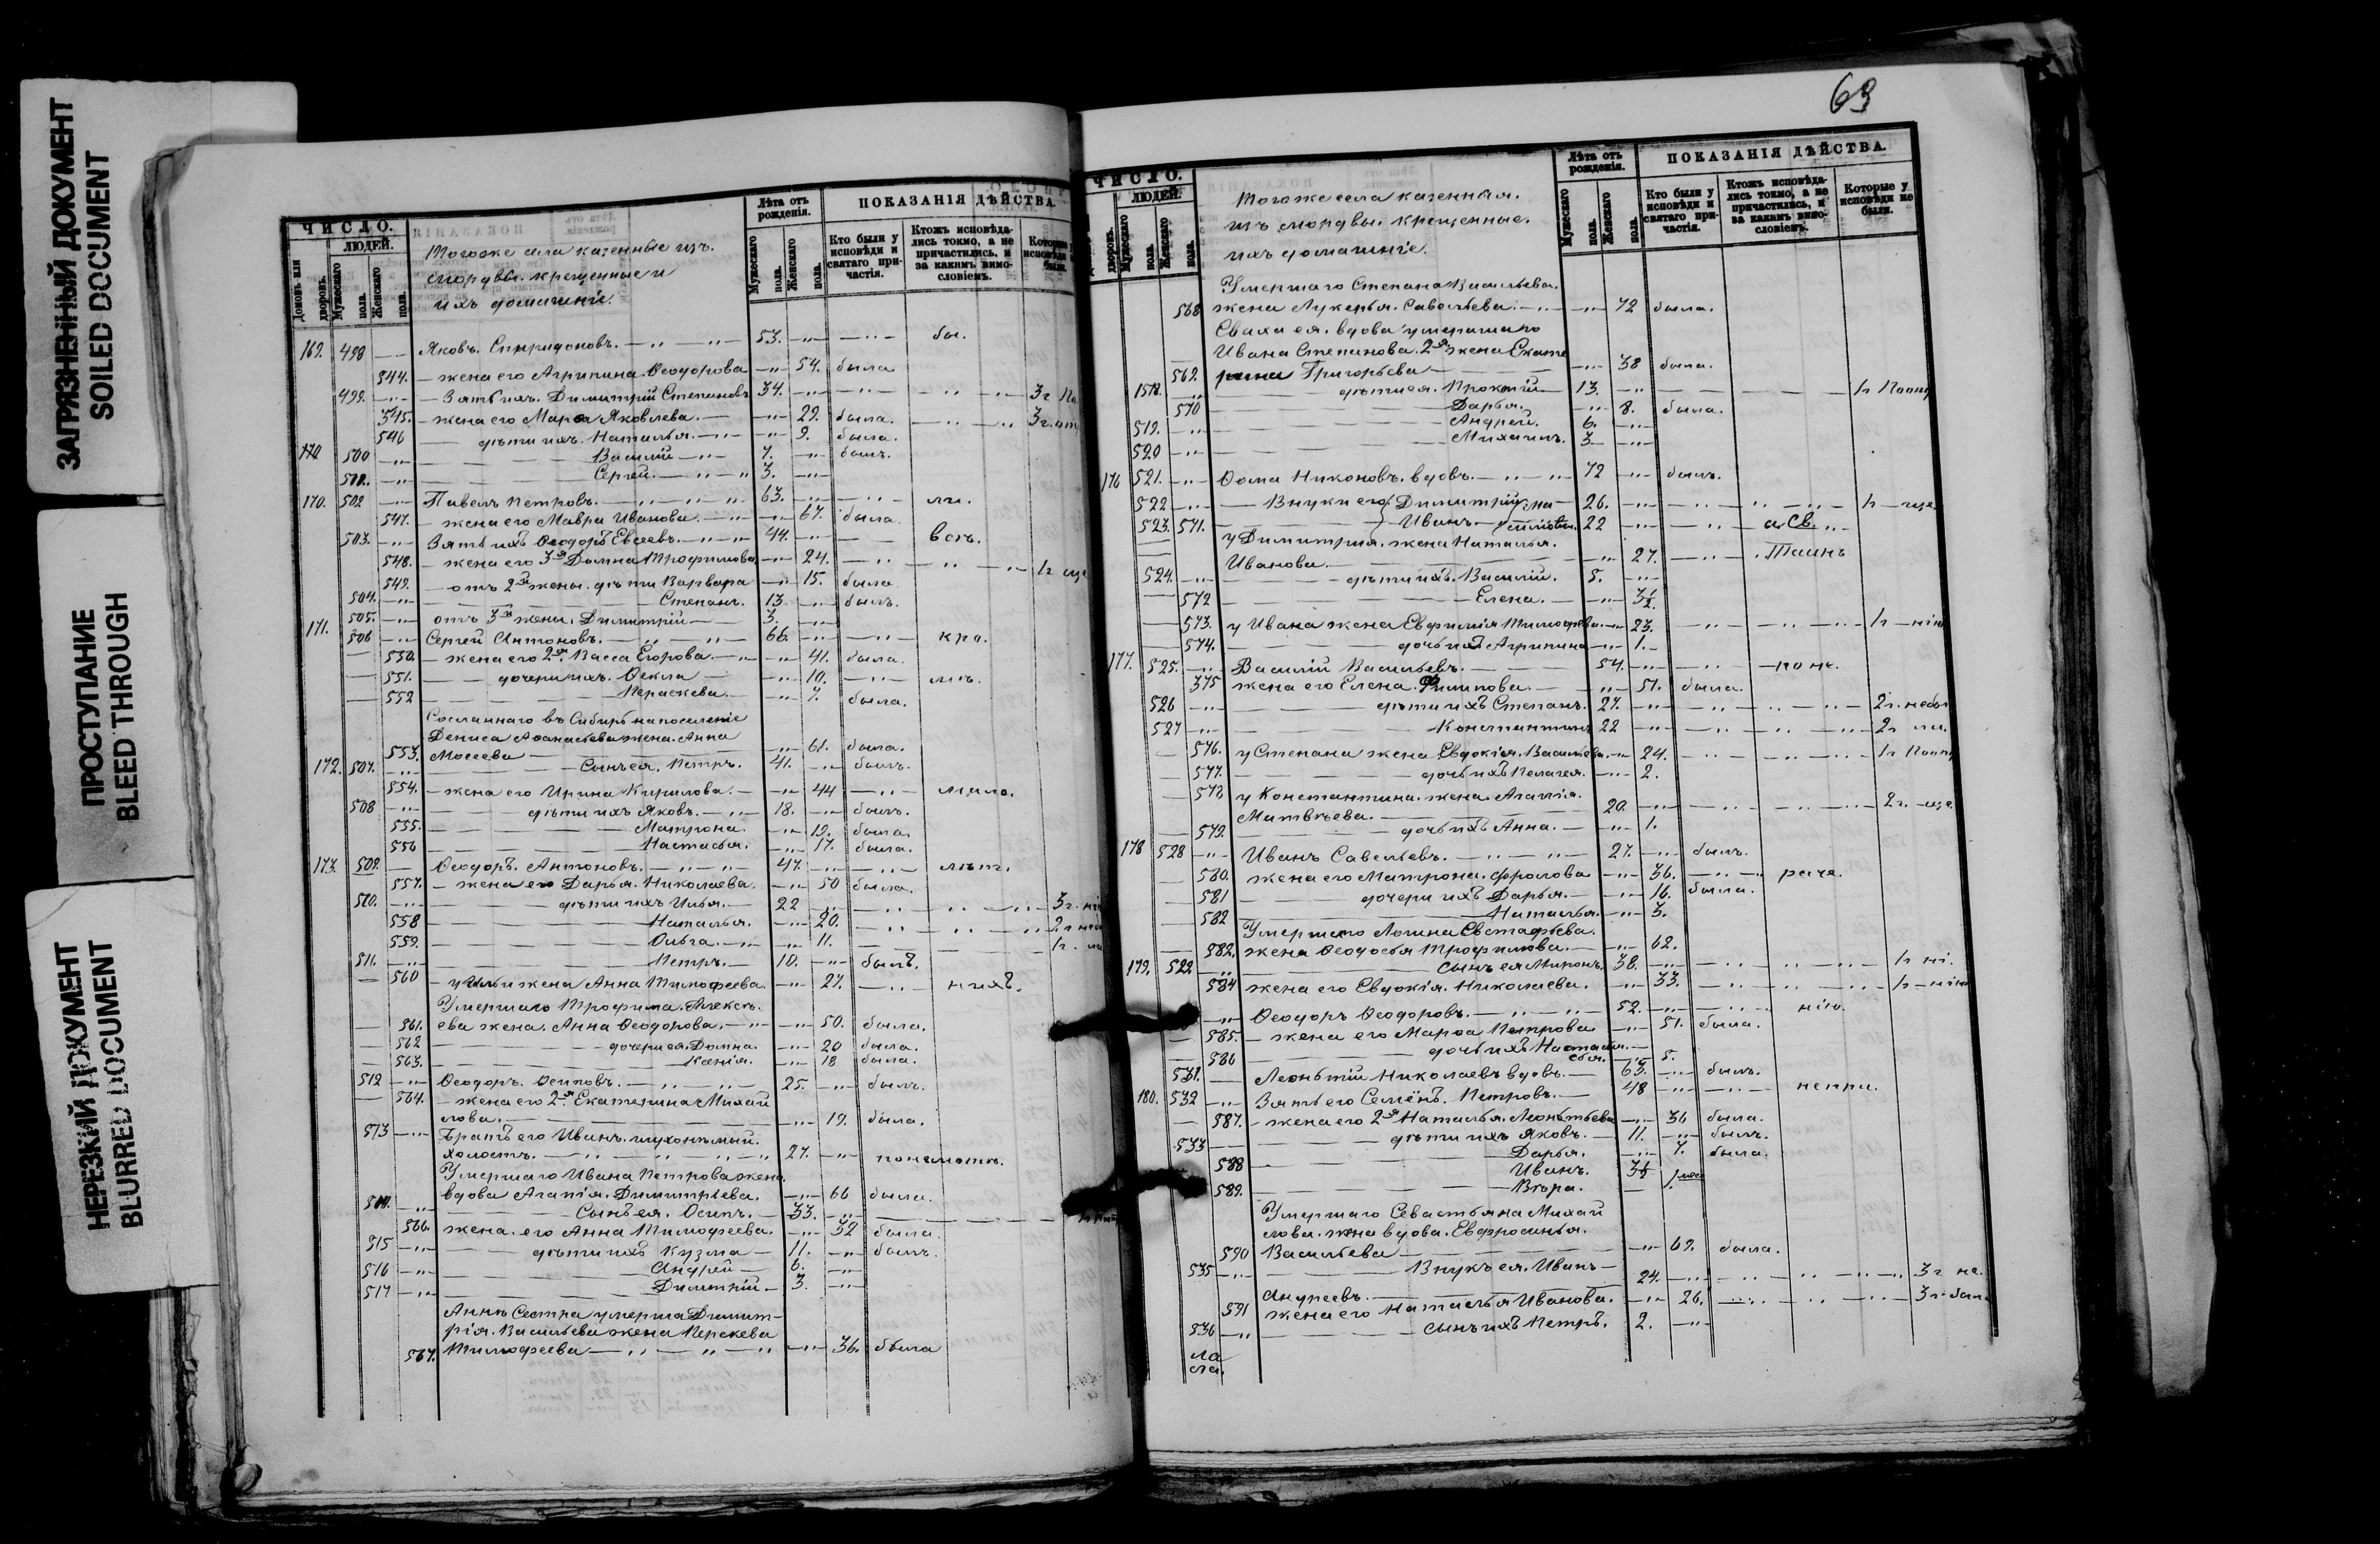 ЗАГРЯЗНЕННЫЙ ДОКУМЕНТ
SOILED DOCUMENT
ПРОСТУПАНИЕ
BLEED THROUGH
НЕРЕЗКИЙ ДОКУМЕНТ
BLURRED DOCUMENT
ЧИСЛО.
ЛЮДЕЙ.
Домовъ или дворовъ.
Мужескаго пола.
Женскаго пола.
Тогоже села казенные изъ
мордвы крещенные и
ихъ домашніе.
Лѣта отъ рожденія.
Мужескаго пола.
Женскаго пола.
ПОКАЗАНІЯ ДѢЙСТВА.
Кто были у исповѣди и святаго причастія.
Ктожъ исповѣдались токмо, а не причастились, и за какимъ винословіемъ.
169. 498 Яковъ Спиридоновъ. 53. бы.
544. жена его Агрипина Ѳеодорова 54. была
499. Зять ихъ Димитрій Степановъ 34. 3г.
545. жена его Марѳа Яковлева. 29. была. 3г.
546 дѣти ихъ Наталья. 9. была.
170 500 Василій 7. былъ.
501. Сергей. 3.
170. 502 Павелъ Петровъ. 63. ли.
547. жена его Мавра Иванова. 67. была.
503. Зять ихъ Ѳеодоръ Евсеевъ. 44.
548. жена его 3я Домна Трофимова 24. 1г
549. отъ 2й жены дѣти Варвара 15. была
504. Степанъ. 13. былъ.
505. отъ 3й жены Димитрій 3.
171. 506 Сергей Антоновъ. 66. кра.
550. жена его 2я Васса Егорова. 41. была.
551. дочери ихъ Ѳекла 10.
552 Параскева. 7. была.
Сосланнаго въ Сибирь на поселеніе
Дениса Аѳанасьева жена Анна
553. Мосеева 61. была.
172. 507. Сынъ ея Петръ. 41. былъ.
554. жена его Ирина Кирилова. 44
508 дѣти ихъ Яковъ. 18. былъ.
555. Матрона. 19. была.
556 Настасья. 17. была.
173. 509. Ѳеодоръ Антоновъ. 47. лѣт.
557. жена его Дарья Николаева. 50 была.
510. дѣти ихъ Илья. 22 3г.
558 Наталья. 20. 2г
559. Ольга. 11. 1г.
511. Петръ. 10. былъ.
560 у Ильи жена Анна Тимофеева. 27. нихъ.
Умершаго Трофима Алексѣ
561. ева жена Анна Ѳеодорова. 50. была.
562 дочери ея Домна. 20 была.
563. Ксенія. 18 была.
512 Ѳеодоръ Осиповъ. 25. былъ.
564. жена его 2я Екатерина Михай
лова. 19. была.
513 Братъ его Иванъ глухонѣмый.
холостъ. 27.
Умершаго Ивана Петрова жена
вдова Агапія Димитріева. 66 была.
514. Сынъ ея Осипъ. 33.
566. жена его Анна Тимофеева. 32 была.
515 дѣти ихъ Кузма 11. былъ.
516 Андрей 6.
517 Димитрій 3.
Аннѣ Сестра умерша Димит-
рія Васильева жена Перскева
567. Тимофеева 36. была
63
ЧИСЛО.
ЛЮДЕЙ.
дворовъ.
Мужескаго пола.
Женскаго пола.
Тогоже села казенныя
изъ мордвы крещенные
ихъ домашніе.
Лѣта отъ рожденія.
Мужескаго пола.
Женскаго пола.
ПОКАЗАНІЯ ДѢЙСТВА.
Кто были у исповѣди и святаго причастія.
Ктожъ исповѣдались токмо, а не причастились, и за какимъ винословіемъ.
Которые у исповѣди не были.
Умершаго Степана Васильева
568 жена Лукерья Савельева. 72 была.
Сваха ея вдова умершаго
Ивана Степанова 2я жена Екате
569. рина Григорьева 38 была.
1518. дѣти ея Прокопій 13. 1г
570 Дарья. 8. была.
519. Андрей. 6.
520 Михаилъ. 3
176 521. Ѳома Никоновъ вдовъ. 72 былъ.
522 Внуки его Димитрій 26. 1г
523. 571. Иванъ 22 и Св.
у Димитрія жена Наталья
Иванова 27. Таинъ
524. дѣти ихъ Василій. 5.
572 Елена. 3½.
573. у Ивана жена Евфимія Тимофеева 23. 1г
574. дочь ихъ Агрипина 1.
177. 525. Василій Васильевъ. 54.
375 жена его Елена Филипова. 51. была.
526 дѣти ихъ Степанъ. 27. 2г. небы
527 Константинъ 22 2г ли.
576. у Степана жена Евдокія Васильева 24. 1г
577. дочь ихъ Пелагея. 2.
578 у Константина жена Агапія
Матвѣева. 20. 2г.
579. дочь ихъ Анна. 1.
178 528 Иванъ Савельевъ. 27. былъ.
580. жена его Матрона Фролова 36.
581 дочери ихъ Дарья. 16. была.
582 Наталья. 3.
Умершаго Логина Евстафьева
582. жена Ѳеодосья Трофимова. 62.
179. 529 сынъ ея Миронъ. 38. 1г ні.
584 жена его Евдокія Николаева. 33. 1г
Ѳеодоръ Ѳеодоровъ. 52. нію.
585. жена его Марѳа Петрова 51. была.
586 дочь ихъ Настась
сья. 5.
531. Леонтій Николаевъ вдовъ. 63. былъ.
180. 532 Зять его Семёнъ Петровъ. 48 непри.
587. жена его 2я Наталья Леонтьева 36 была.
533 дѣти ихъ Яковъ. 11. былъ.
588 Дарья. 7. была.
Иванъ. 3½
589. Вѣра.
Умершаго Севастьяна Михай
лова жена вдова Евфросинья
590 Васильева 69. была.
535 Внукъ ея Иванъ
Андреевъ. 24. 3г не.
591 жена его Наталья Иванова. 26. 3г.
536 сынъ ихъ Петръ. 2.